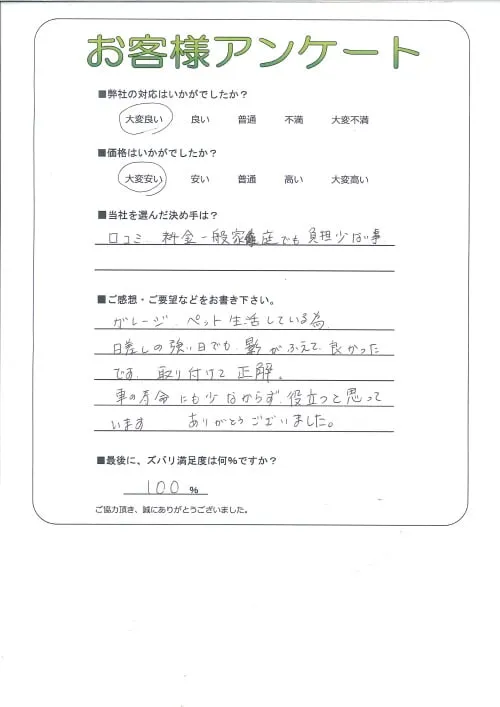 お客様アンケート
■弊社の対応はいかがでしたか？
大変良い 良い 普通 不満 大変不満
■価格はいかがでしたか？
大変安い 安い 普通 高い 大変高い
■当社を選んだ決め手は？
口コミ、料金一般家庭でも負担少ない事
■ご感想・ご要望などをお書き下さい。
ガレージ、ペット生活している為、
日差しの強い日でも、影がふえて、良かった
です。取り付けて正解。
車の寿命にも少なからず、役立つと思って
います ありがとうございました。
■最後に、ズバリ満足度は何%ですか？
100 %
ご協力頂き、誠にありがとうございました。